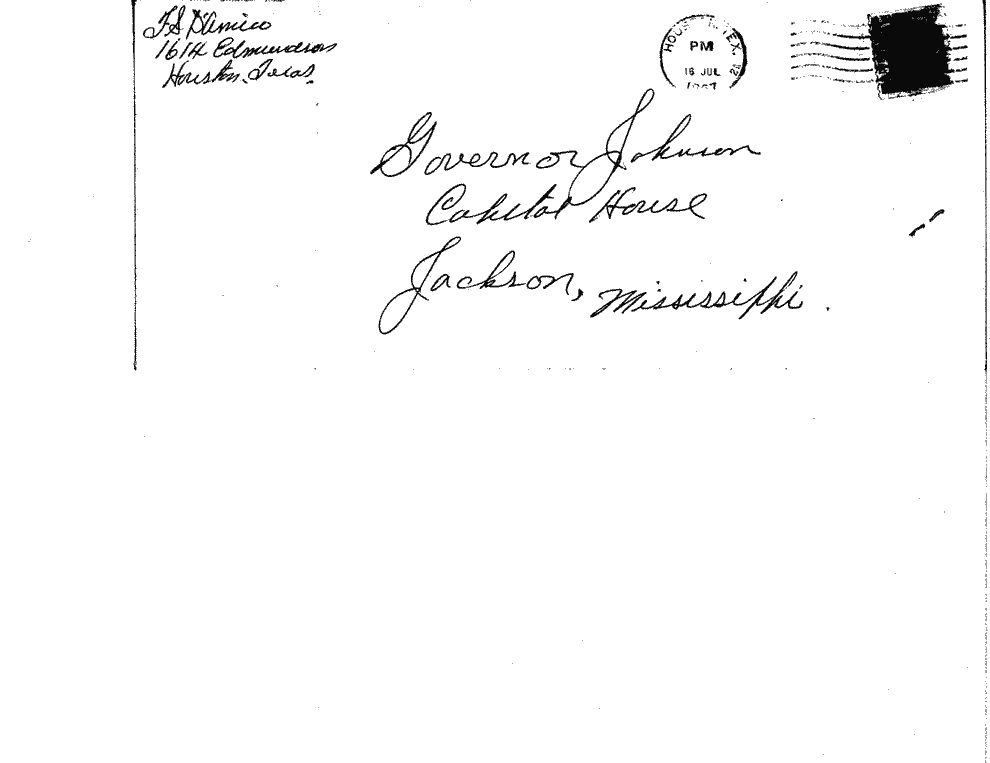 F.S. D'Amico
1614 Edmundson
Houston, Texas.
HOUSTON, TEX.
PM
16 JUL
1967
Governor Johnson
Capitol House
Jackson, Mississippi.